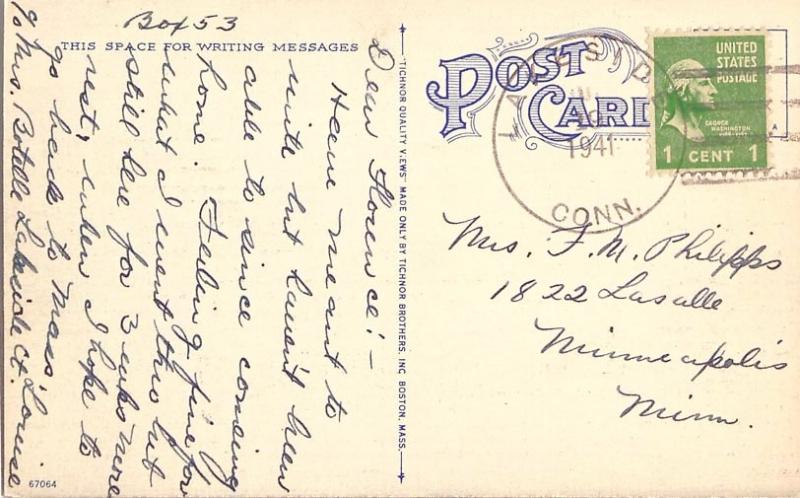 Box 53
THIS SPACE FOR WRITING MESSAGES
Dear Florence:-
Have meant to
write but haven't been
able to since coming
home. Feeling fine for
what I went thru but
still here for 3 weeks more
rest, when I hope to
go back to Mass. Louise
℅ Mrs. Botelle Lakeside Ct.
67064
"TICHNOR QUALITY VIEWS" MADE ONLY BY TICHNOR BROTHERS, INC. BOSTON, MASS.
POST
CARD
LAKESIDE
19
1941
CONN.
UNITED
STATES
POSTAGE
GEORGE
WASHINGTON
1 CENT 1
Mrs. F. M. Philipps
1822 Lasalle
Minneapolis
Minn.